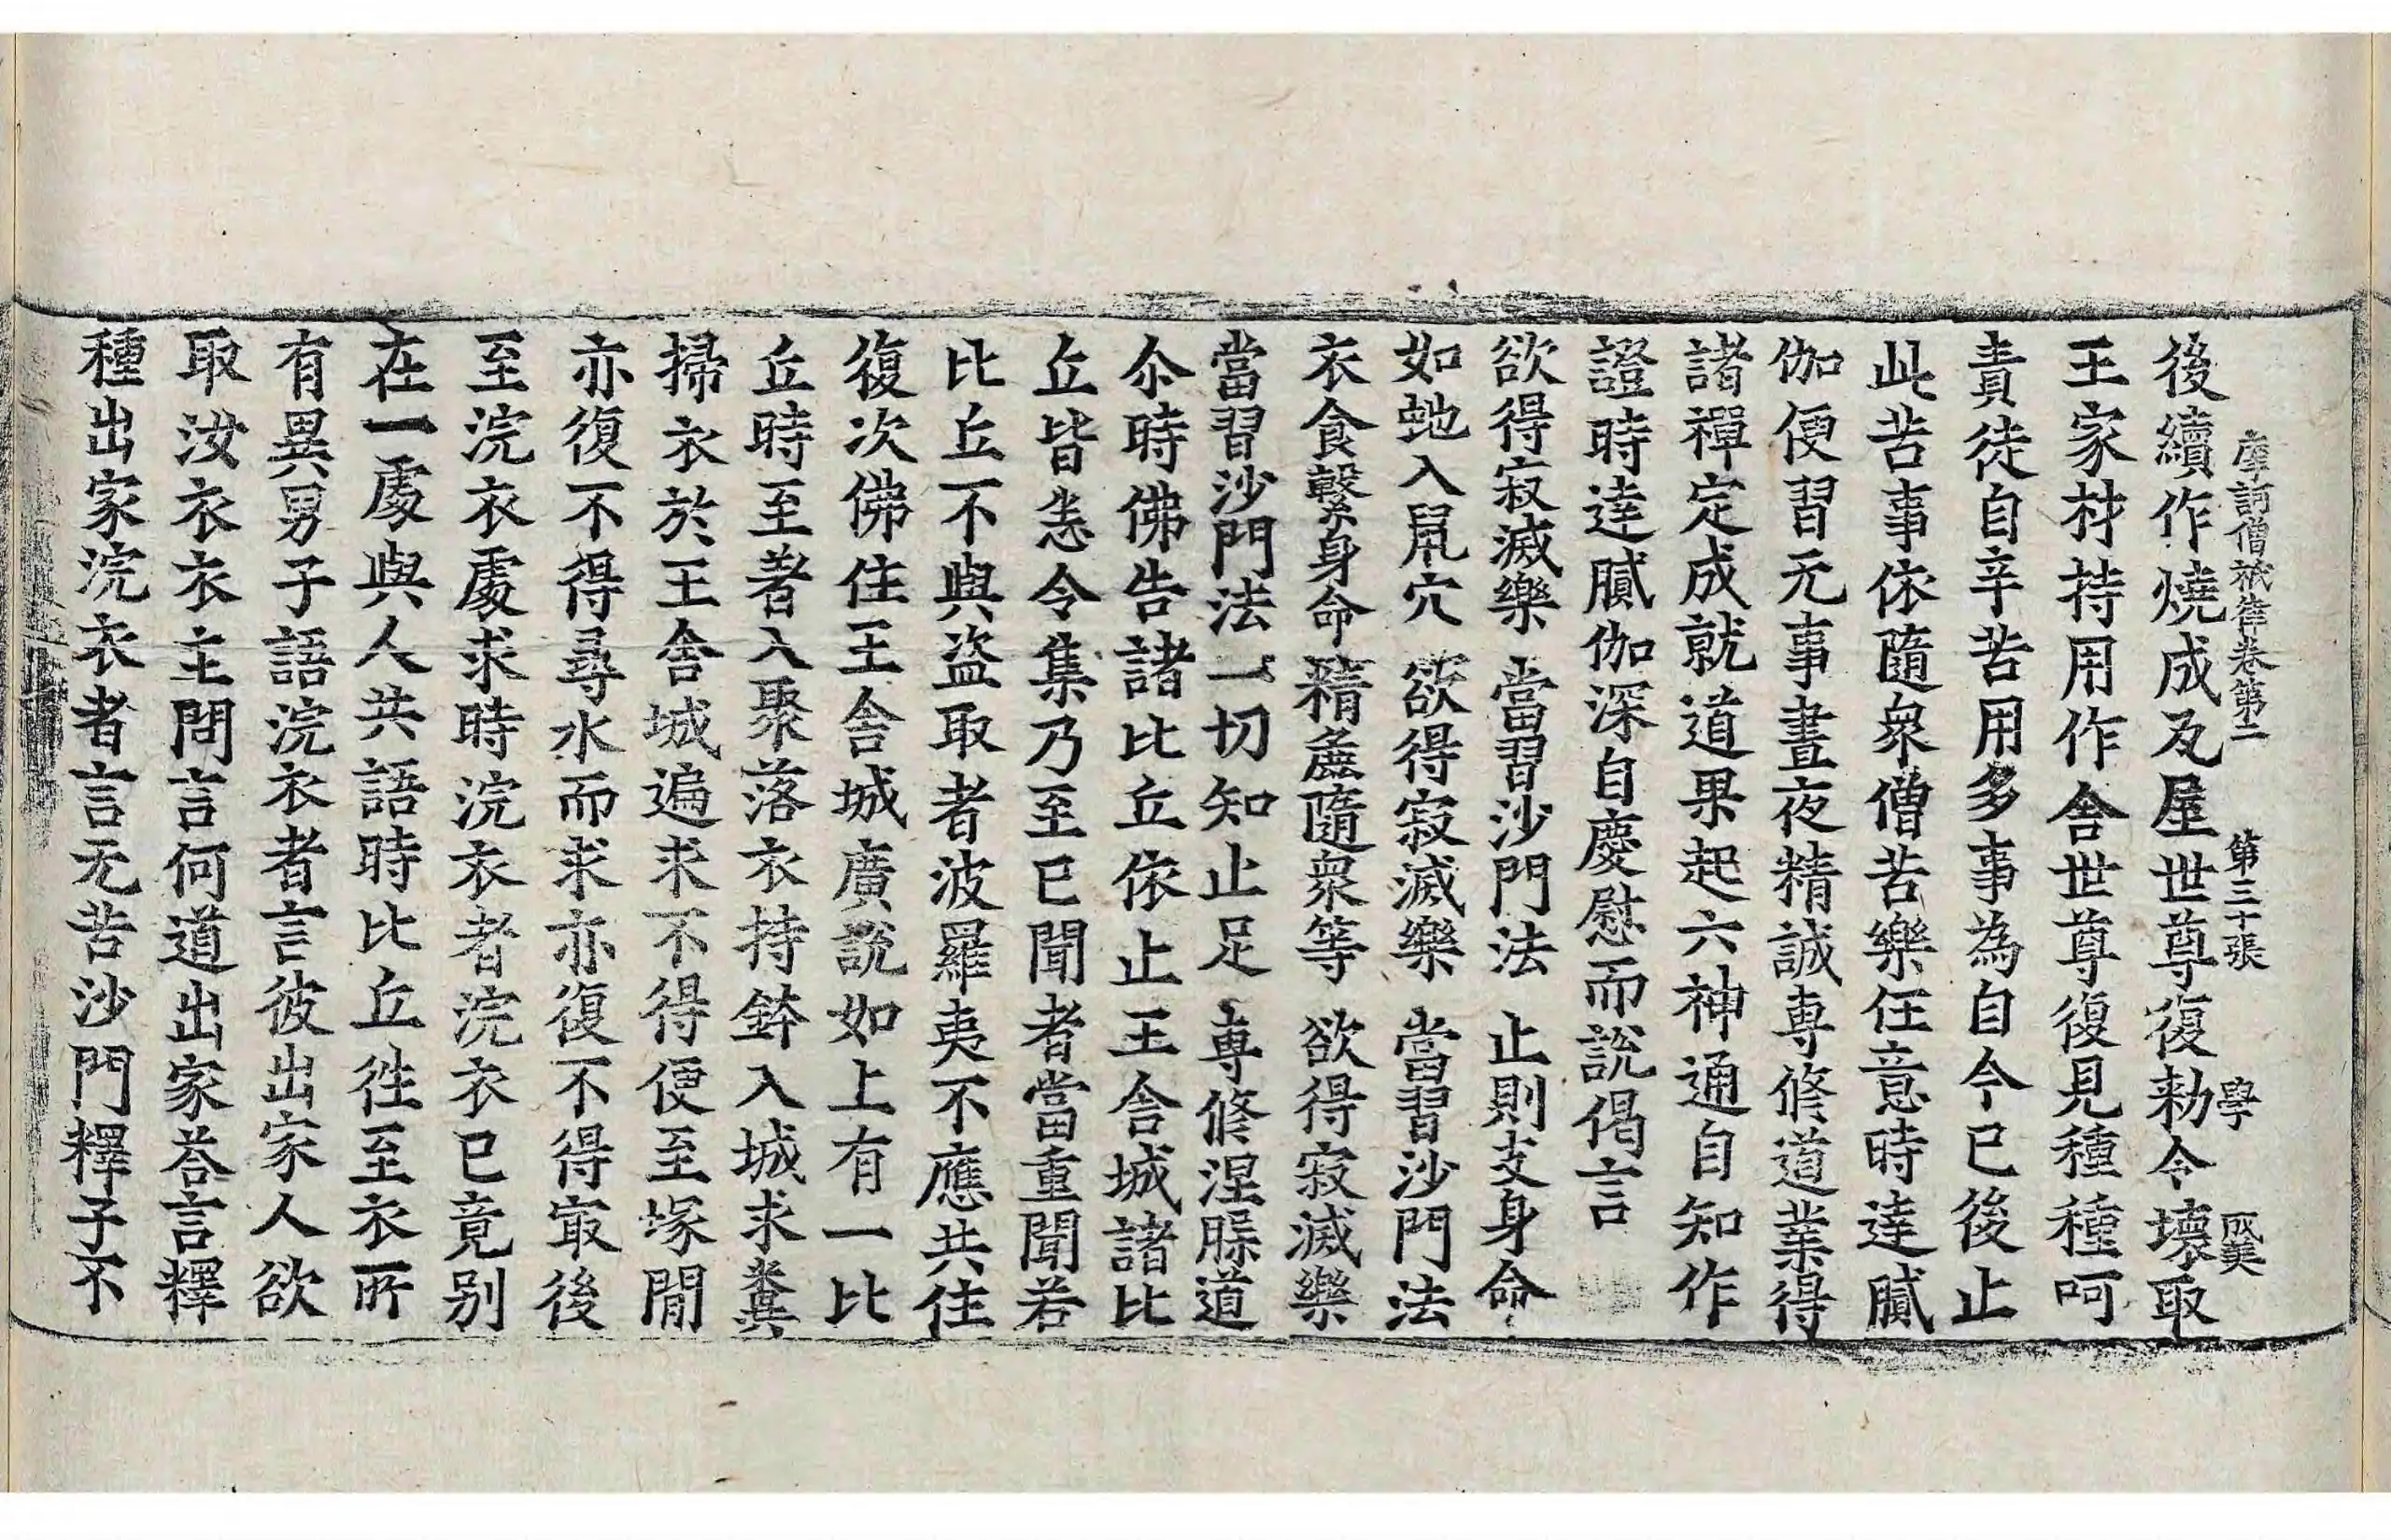 摩訶僧祇律卷第二 第三十張 學
後續作燒成瓦屋世尊復勑令壞取
王家材持用作舍世尊復見種種呵
責徒自辛苦用多事為自今已後止
此苦事依隨衆僧苦樂任意時達膩
伽便習无事晝夜精誠專修道業得
諸禪定成就道果起六神通自知作
證時達膩伽深自慶慰而說偈言
欲得寂滅樂 當習沙門法 止則支身命
如虵入鼠穴 欲得寂滅樂 當習沙門法
衣食繫身命 精麁隨衆等 欲得寂滅樂
當習沙門法 一切知止足 專修涅槃道
尒時佛告諸比丘依止王舍城諸比
丘皆悉令集乃至已聞者當重聞若
比丘不與盜取者波羅夷不應共住
復次佛住王舍城廣說如上有一比
丘時至著入聚落衣持鉢入城求糞
掃衣於王舍城遍求不得便至塚間
亦復不得尋水而求亦復不得冣後
至浣衣處求時浣衣者浣衣已竟別
在一處與人共語時比丘徃至衣所
有異男子語浣衣者言彼出家人欲
取汝衣衣主問言何道出家荅言釋
種出家浣衣者言无苦沙門釋子不